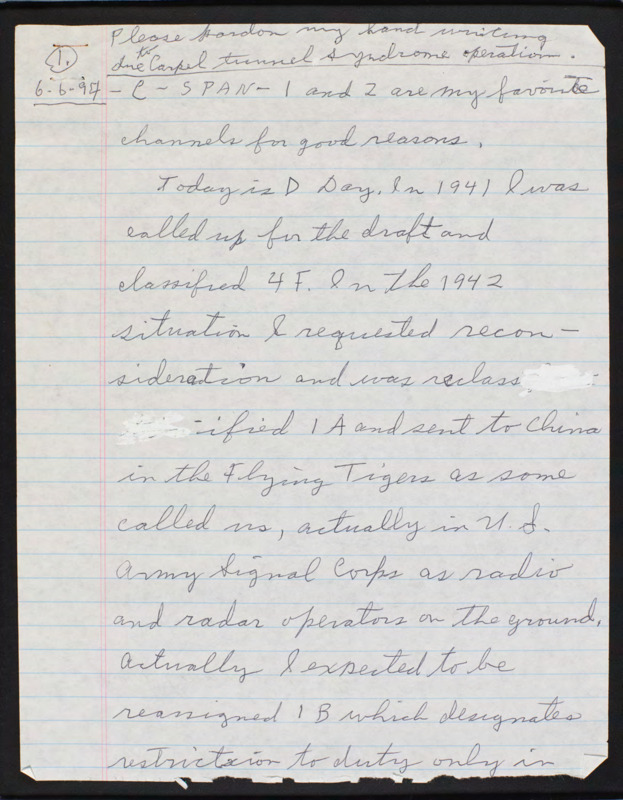 Please pardon my hand writing
due to Carpel tunnel syndrome operation.
1.
6-6-97 - C-SPAN-1 and 2 are my favorite
channels for good reasons.
Today is D Day. In 1941 I was
called up for the draft and
classified 4 F. In the 1942
situation I requested recon-
sideration and was reclass
-ified 1 A and sent to China
in the Flying Tigers as some
called us, actually in U.S.
Army Signal Corps as radio
and radar operators on the ground.
Actually I expected to be
reassigned 1 B which designates
restriction to duty only in